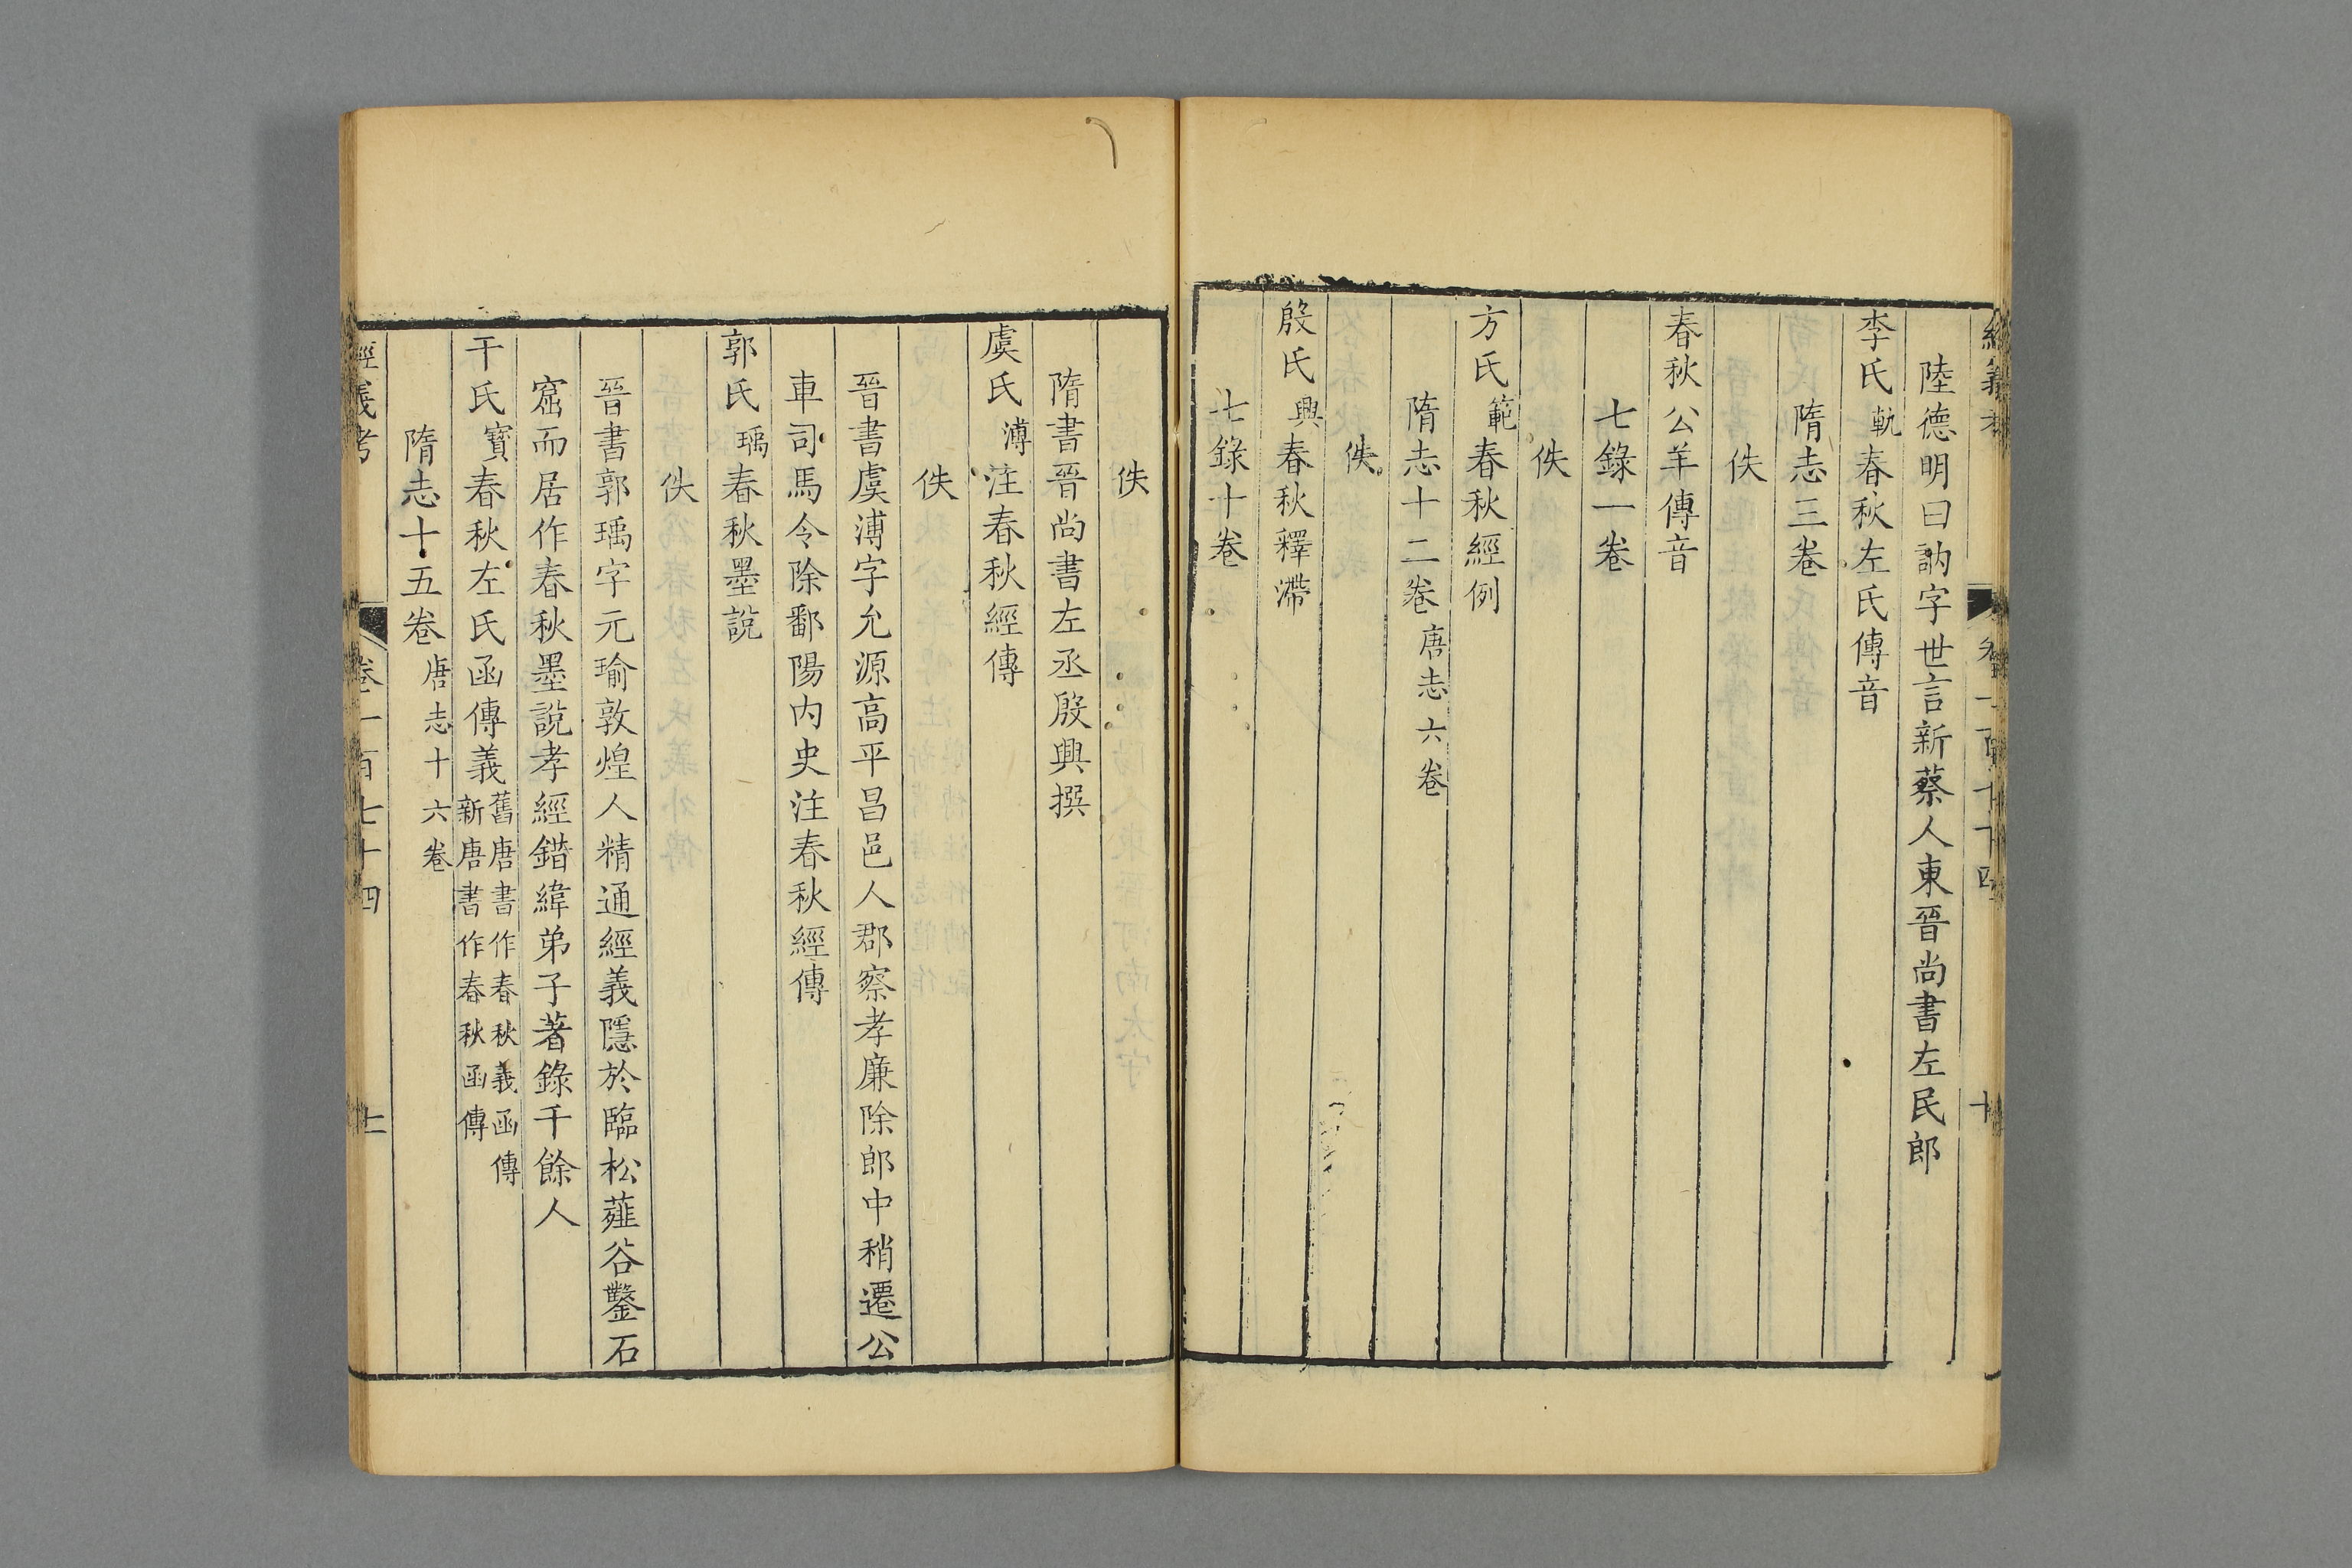 經義考 卷一百七十四 十
陸德明曰訥字世言新蔡人東晉尚書左民郎
李氏軌春秋左氏傳音
隋志三卷
佚
春秋公羊傳音
七錄一卷
佚
方氏範春秋經例
隋志十二卷唐志六卷
佚
殷氏興春秋釋滯
七錄十卷
佚
隋書晉尚書左丞殷興撰
虞氏溥注春秋經傳
佚
晉書虞溥字允源高平昌邑人郡察孝廉除郎中稍遷公
車司馬令除鄱陽內史注春秋經傳
郭氏瑀春秋墨說
佚
晉書郭瑀字元瑜敦煌人精通經義隱於臨松薤谷鑿石
窟而居作春秋墨說孝經錯緯弟子著錄千餘人
干氏寶春秋左氏函傳義舊唐書作春秋義函傳
新唐書作春秋函傳
隋志十五卷唐志十六卷
經義考 卷一百七十四 十一